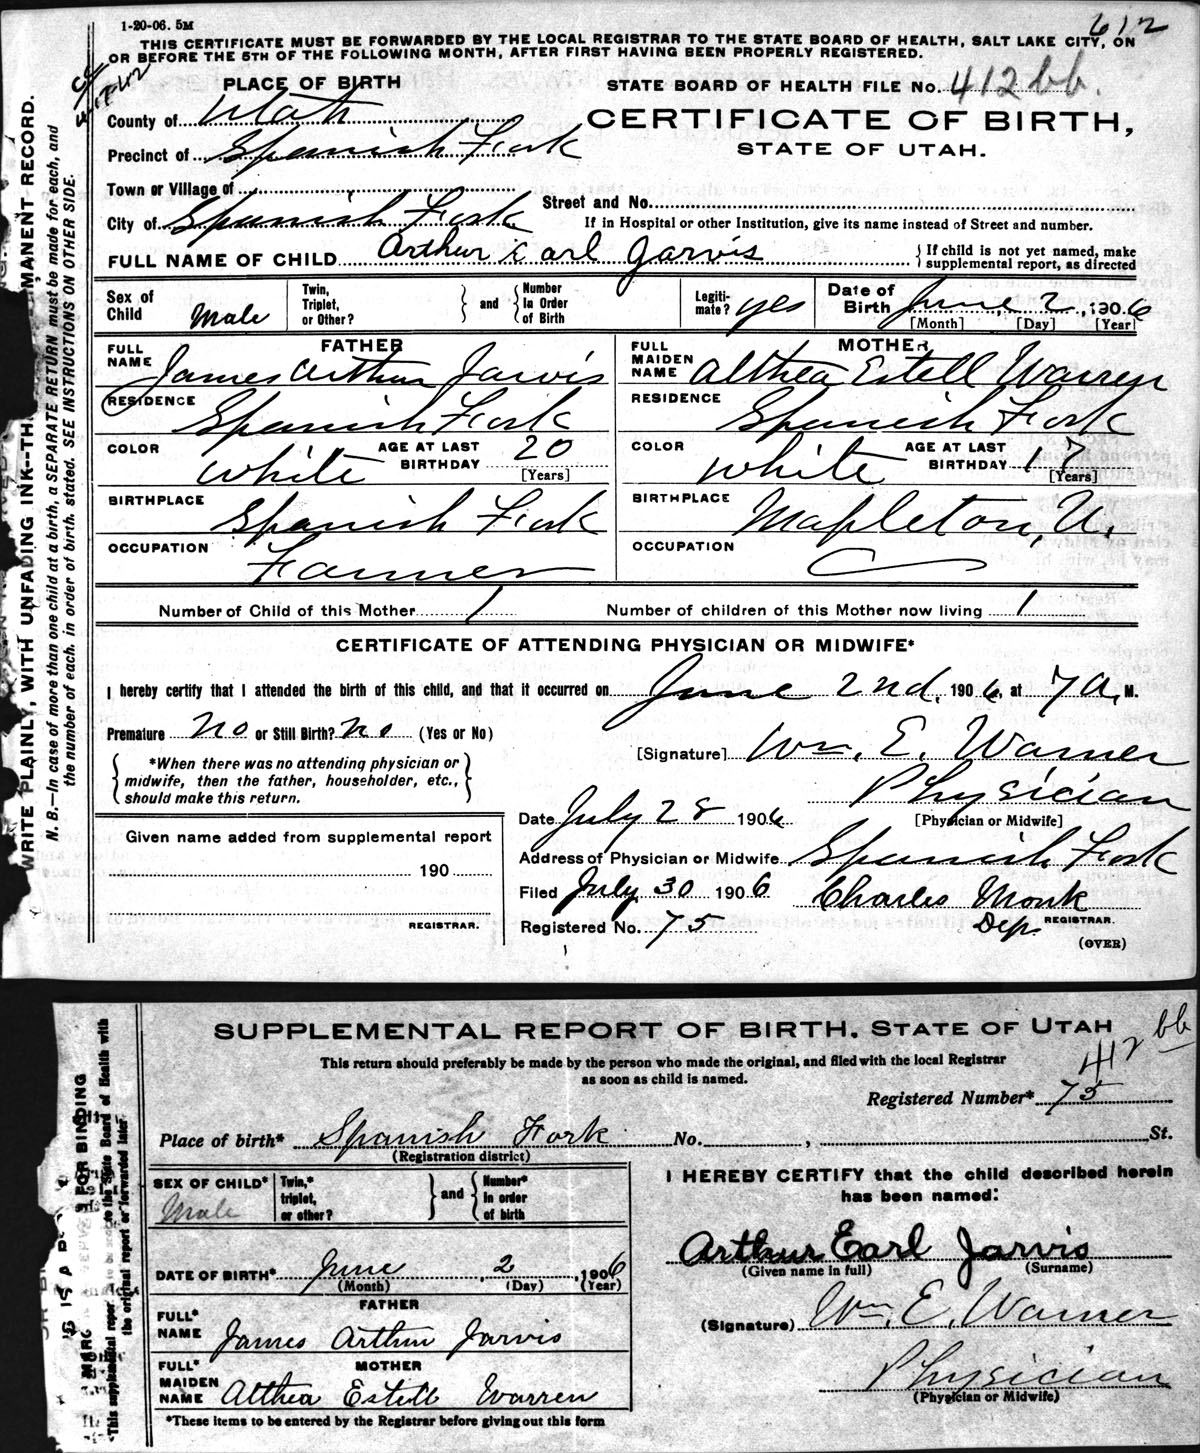 1-20-06. 5M
612
THIS CERTIFICATE MUST BE FORWARDED BY THE LOCAL REGISTRAR TO THE STATE BOARD OF HEALTH, SALT LAKE CITY, ON
OR BEFORE THE 5TH OF THE FOLLOWING MONTH, AFTER FIRST HAVING BEEN PROPERLY REGISTERED.
PLACE OF BIRTH
STATE BOARD OF HEALTH FILE No. 412 bb.
County of Utah
CERTIFICATE OF BIRTH,
Precinct of Spanish Fork
STATE OF UTAH.
Town or Village of
City of Spanish Fork
Street and No.
If in Hospital or other Institution, give its name instead of Street and number.
FULL NAME OF CHILD Arthur Earl Jarvis
If child is not yet named, make
supplemental report, as directed
Sex of Child Male
Twin, Triplet, or Other?
and
Number In Order of Birth
Legiti-mate? yes
Date of Birth June 2, 1906
[Month] [Day] [Year]
FATHER
FULL NAME James Arthur Jarvis
MOTHER
FULL MAIDEN NAME Althea Estell Warren
RESIDENCE Spanish Fork
RESIDENCE Spanish Fork
COLOR White
AGE AT LAST BIRTHDAY 20 [Years]
COLOR White
AGE AT LAST BIRTHDAY 17 [Years]
BIRTHPLACE Spanish Fork
BIRTHPLACE Mapleton, U.
OCCUPATION Farmer
OCCUPATION
Number of Child of this Mother 1
Number of children of this Mother now living 1
CERTIFICATE OF ATTENDING PHYSICIAN OR MIDWIFE*
I hereby certify that I attended the birth of this child, and that it occurred on June 2nd, 1906, at 7 A, M.
Premature no or Still Birth? no (Yes or No)
[Signature] Wm. E. Warner
*When there was no attending physician or
midwife, then the father, householder, etc.,
should make this return.
Physician
[Physician or Midwife]
Date July 28 1906
Given name added from supplemental report
190
REGISTRAR.
Address of Physician or Midwife Spanish Fork
Filed July 30 1906
Charles Monk
Dep. REGISTRAR.
Registered No. 75
(OVER)
WRITE PLAINLY, WITH UNFADING INK--TH MANENT RECORD.
N. B.—In case of more than one child at a birth, a SEPARATE RETURN must be made for each, and
the number of each, in order of birth, stated. SEE INSTRUCTIONS ON OTHER SIDE.
SUPPLEMENTAL REPORT OF BIRTH. STATE OF UTAH
412 bb
This return should preferably be made by the person who made the original, and filed with the local Registrar
as soon as child is named.
Registered Number* 75
Place of birth* Spanish Fork No. , St.
(Registration district)
SEX OF CHILD* Male
Twin,* triplet, or other?
and
Number* in order of birth
I HEREBY CERTIFY that the child described herein
has been named:
Arthur Earl Jarvis
(Given name in full) (Surname)
DATE OF BIRTH* June 2, 1906
(Month) (Day) (Year)
FATHER
FULL* NAME James Arthur Jarvis
(Signature) Wm. E. Warner
MOTHER
FULL* MAIDEN NAME Althea Estell Warren
Physician
(Physician or Midwife)
*These items to be entered by the Registrar before giving out this form
FOR BINDING
*This supplemental repor to the State Board of Health with
the original report or forwarded later